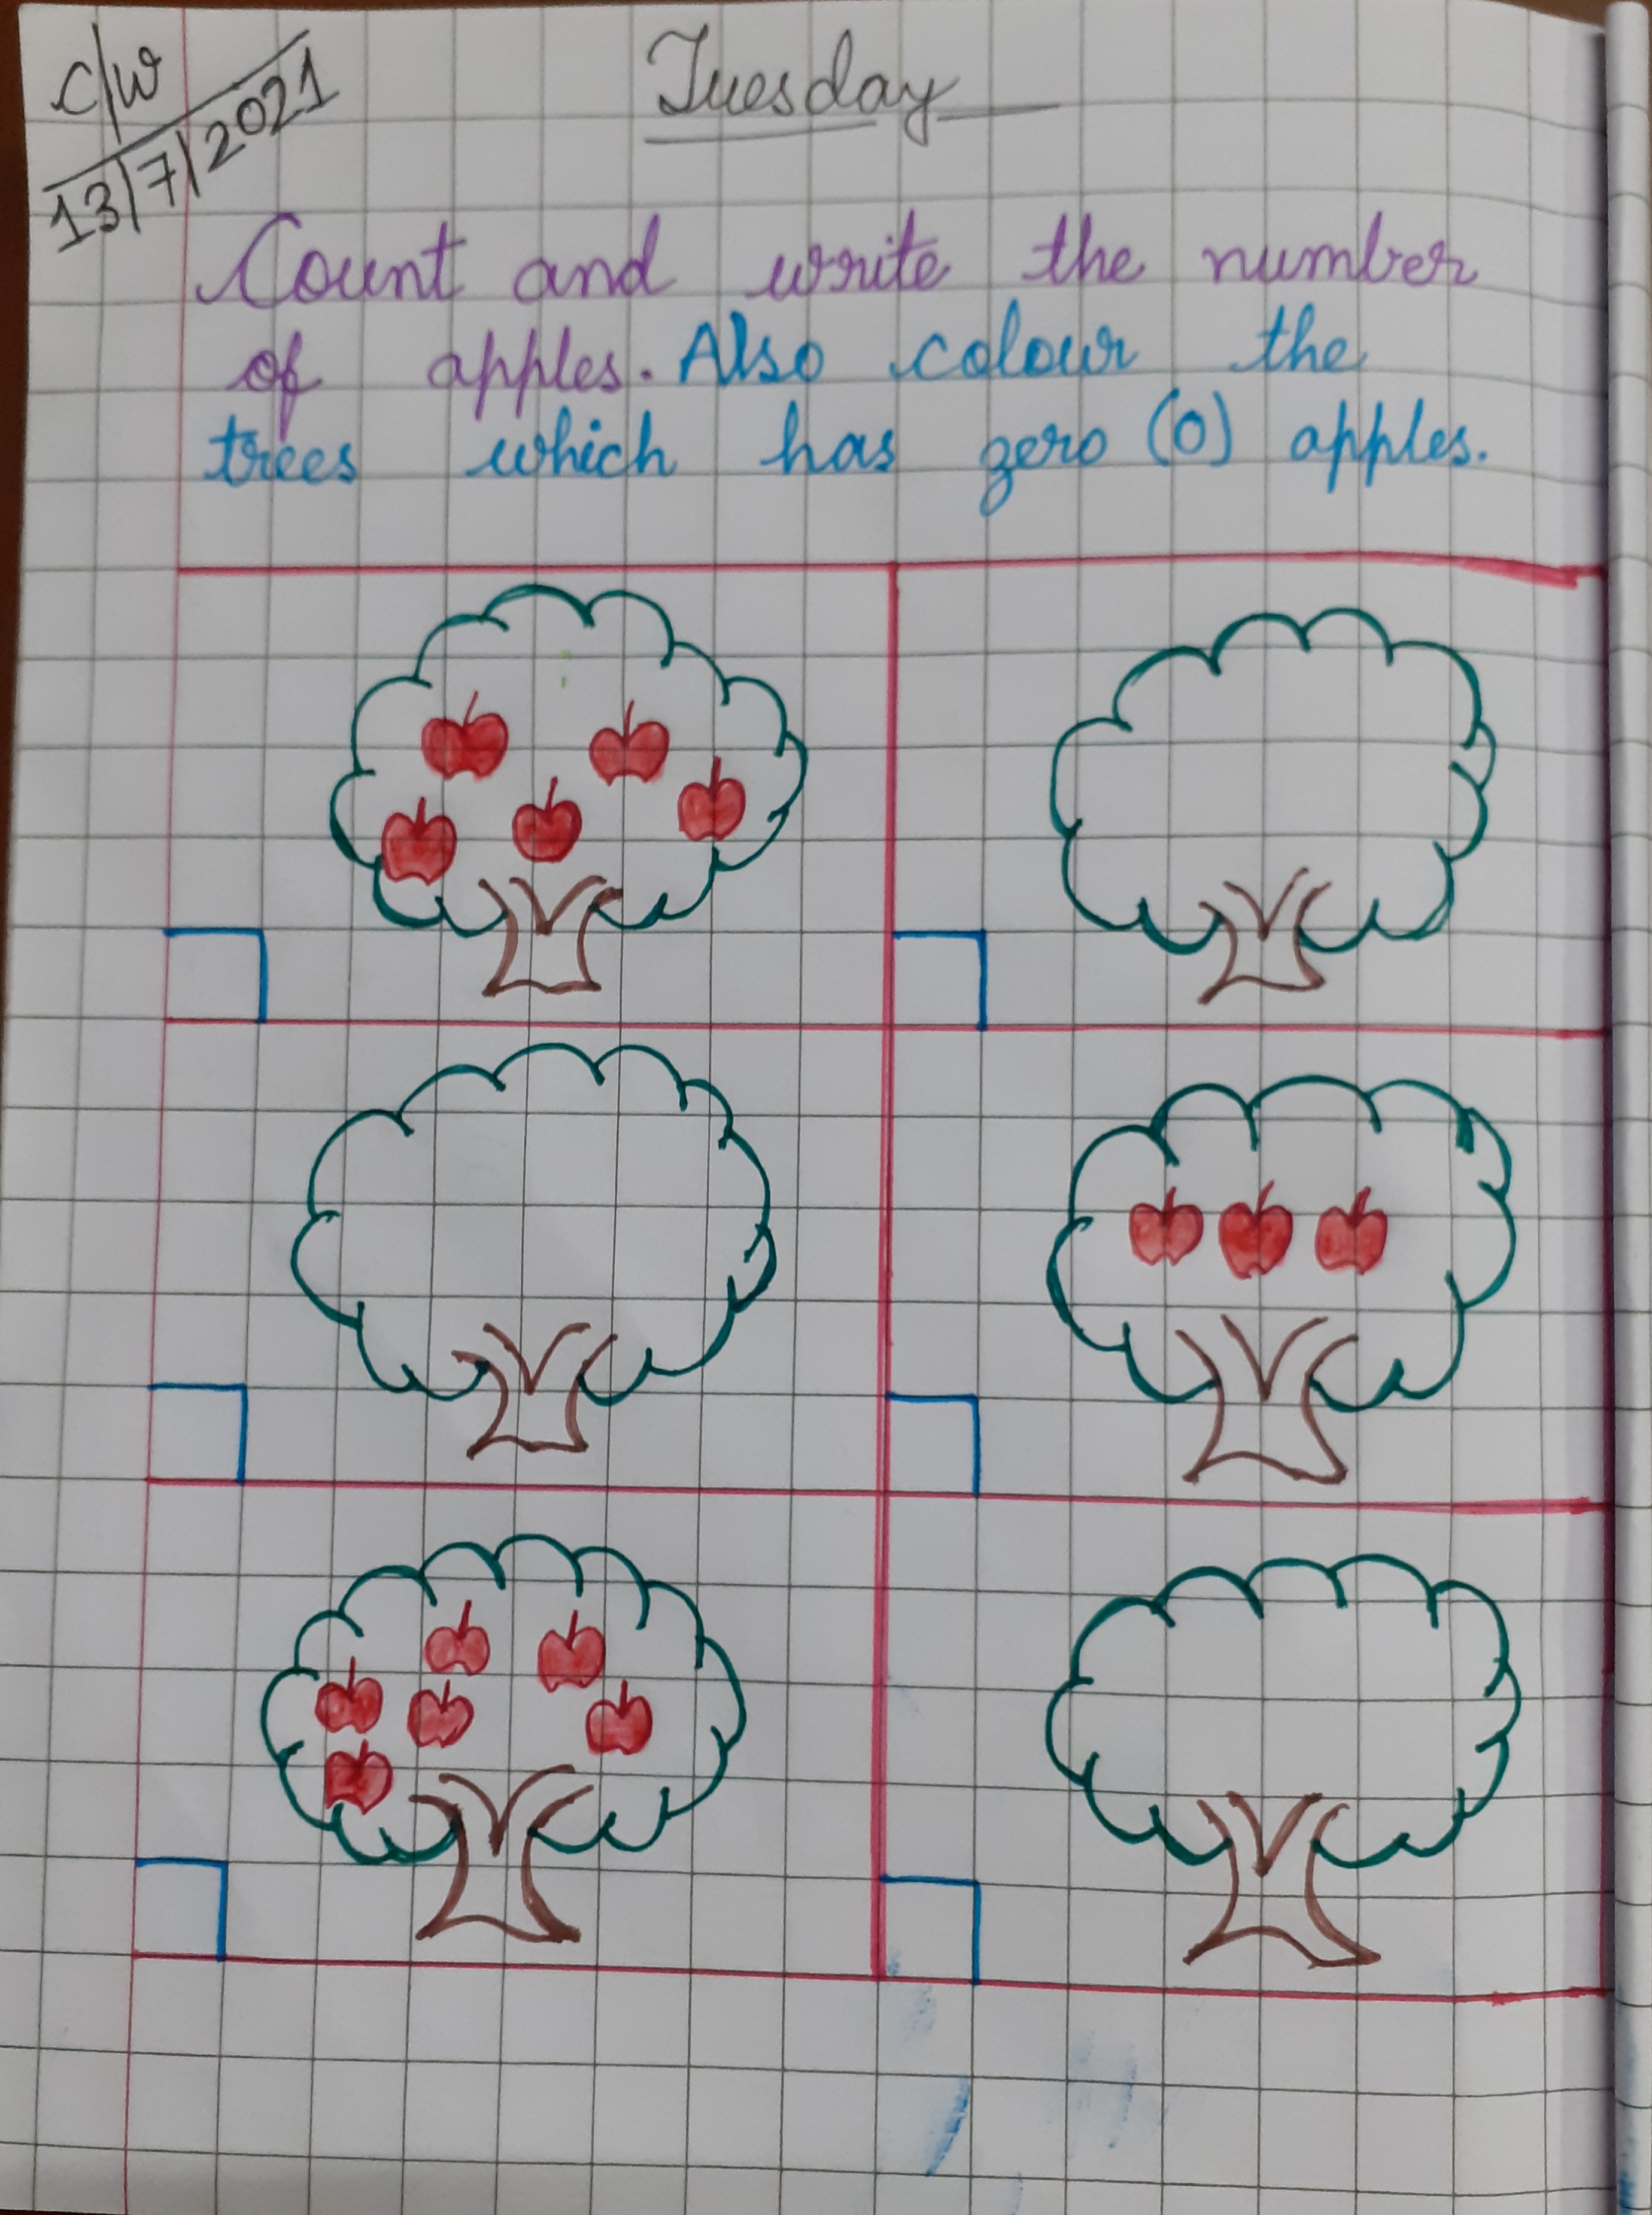 C/W
13/7/2021
Tuesday
Count and write the number
of apples. Also colour the
trees which has zero (0) apples.